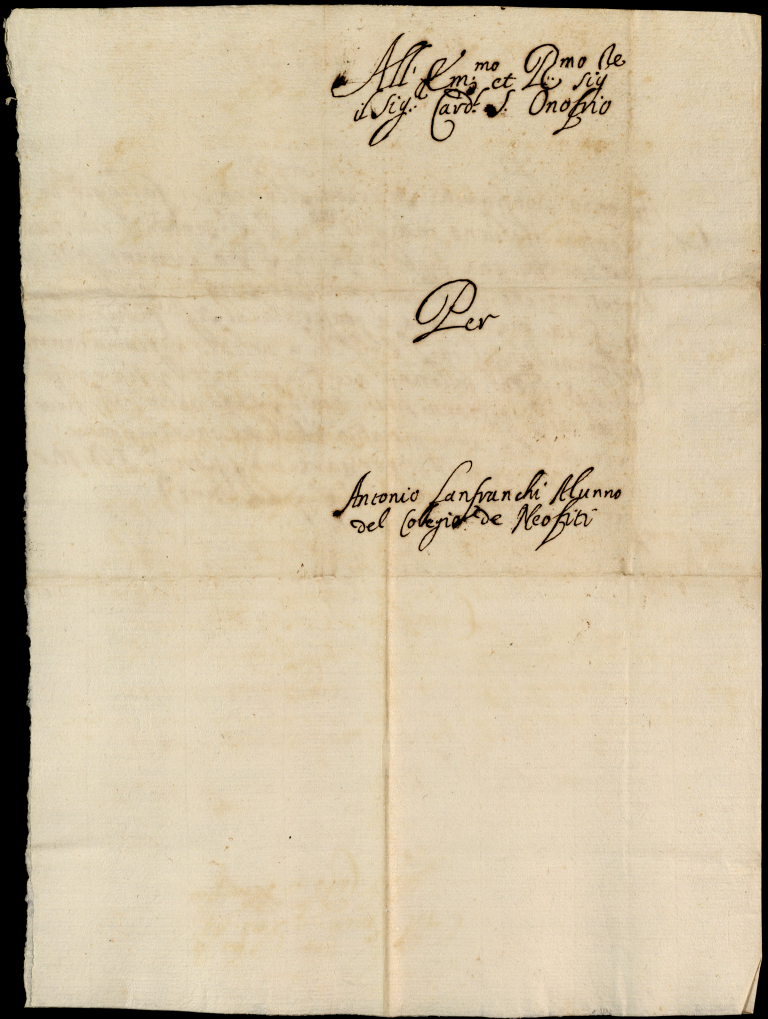 All' Em:mo et R:mo Re sig
il Sig.r Card.l S. Onofrio
Per
Antonio Lanfranchi Alunno
del Colegio de Neofiti